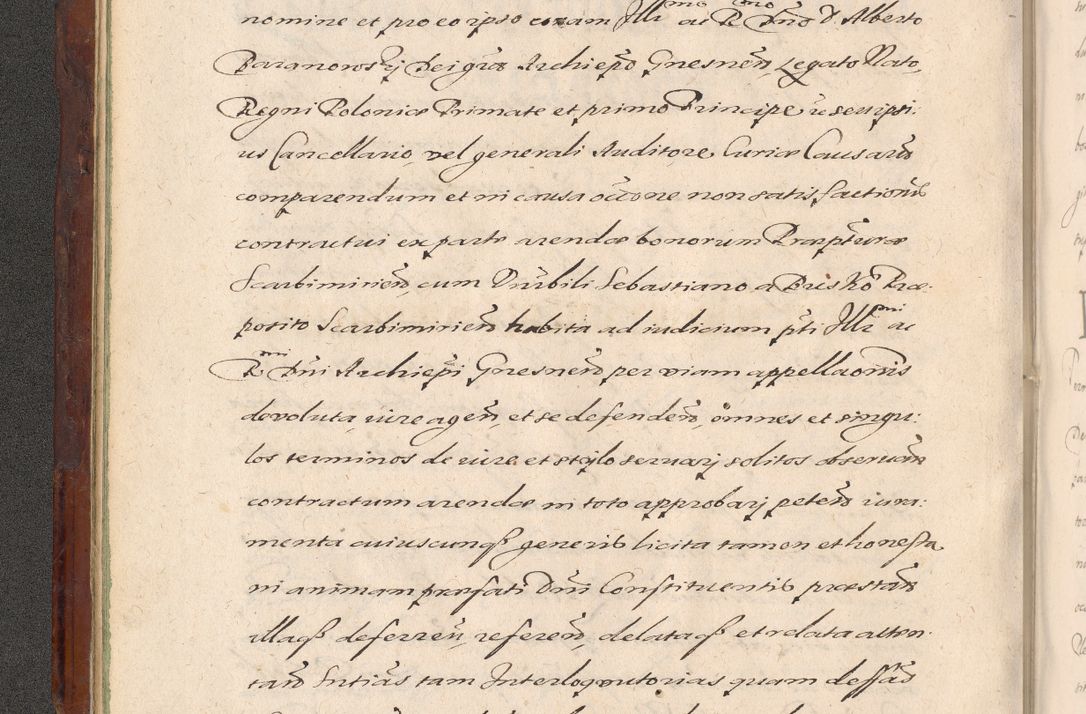 nomine et pro eo ipso coram Illmo ac R. Dno D. Alberto
Baranowskij Dei gra Archiepo Gnesnen, Legato Nato,
Regni Poloniæ Primate et primo Principe, seu ipsi:
us Cancellario, vel generali Auditore, Curiæ Causarũ
comparendum et in causa occõne non satis factionis
contractui ex parte arendæ bonorum Præpturæ
Scarbimirien, cum Vnbili Sebastiano a Brisko Præ:
posito Scarbimirien habita ad iudicium pti Illmi ac
Rmi Dni Archiepi Gnesnen per viam appellaonis
devoluta, iure agen, et se defenden, omnes et singu:
los terminos de iure et stylo servarij solitos observan
contractum arendæ in toto approbarij peten iura:
menta cuiuscunqz generis licita tamen et honesta
in animam præfati Dni Constituentis præstan
illaqz deferren, referen, delataqz et relata accep:
tan Sntias tam Interloquutorias quam deffas